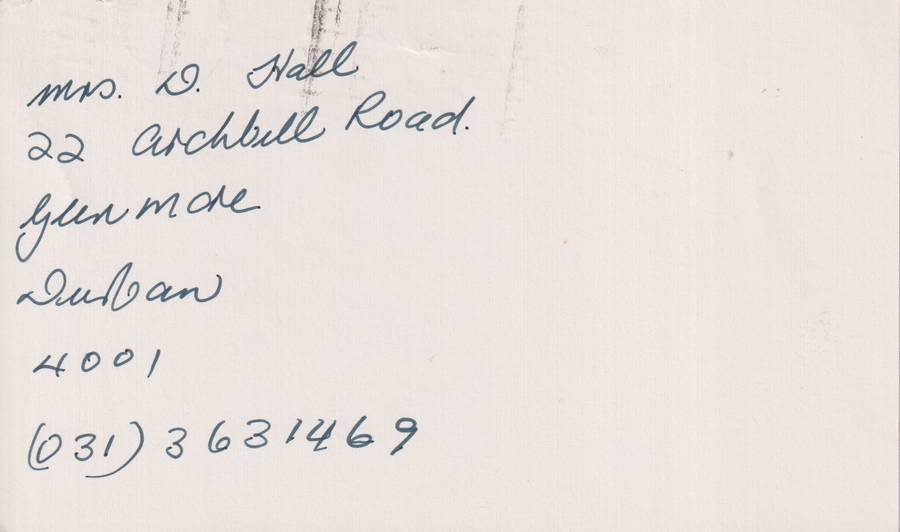 Mrs. D. Hall
22 Archbell Road.
Glenmore
Durban
4001
(031) 3631469